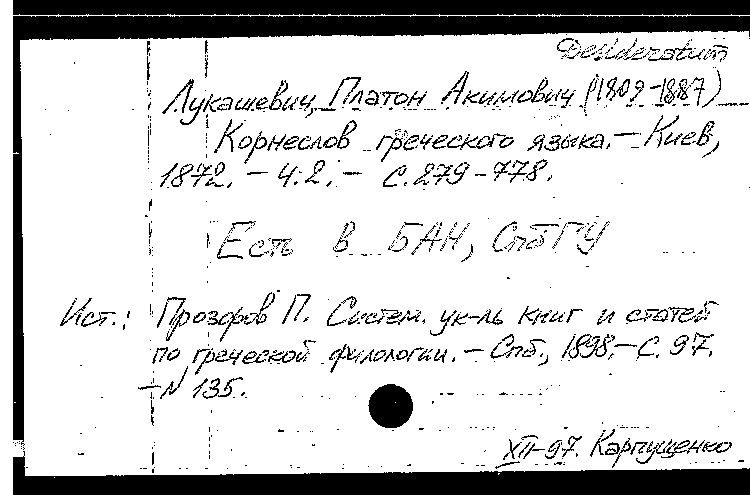 Desideratum
Лукашевич, Платон Акимович (1809-1887)
Корнеслов греческого языка. - Киев,
1872. - Ч.2. - С.279-778.
Есть в БАН, СпбГУ
Ист.: Прозоров П. Систем. ук-ль книг и статей
по греческой филологии. - Спб., 1898. - С. 97.
- N 135.
XII-97. Карпущенко